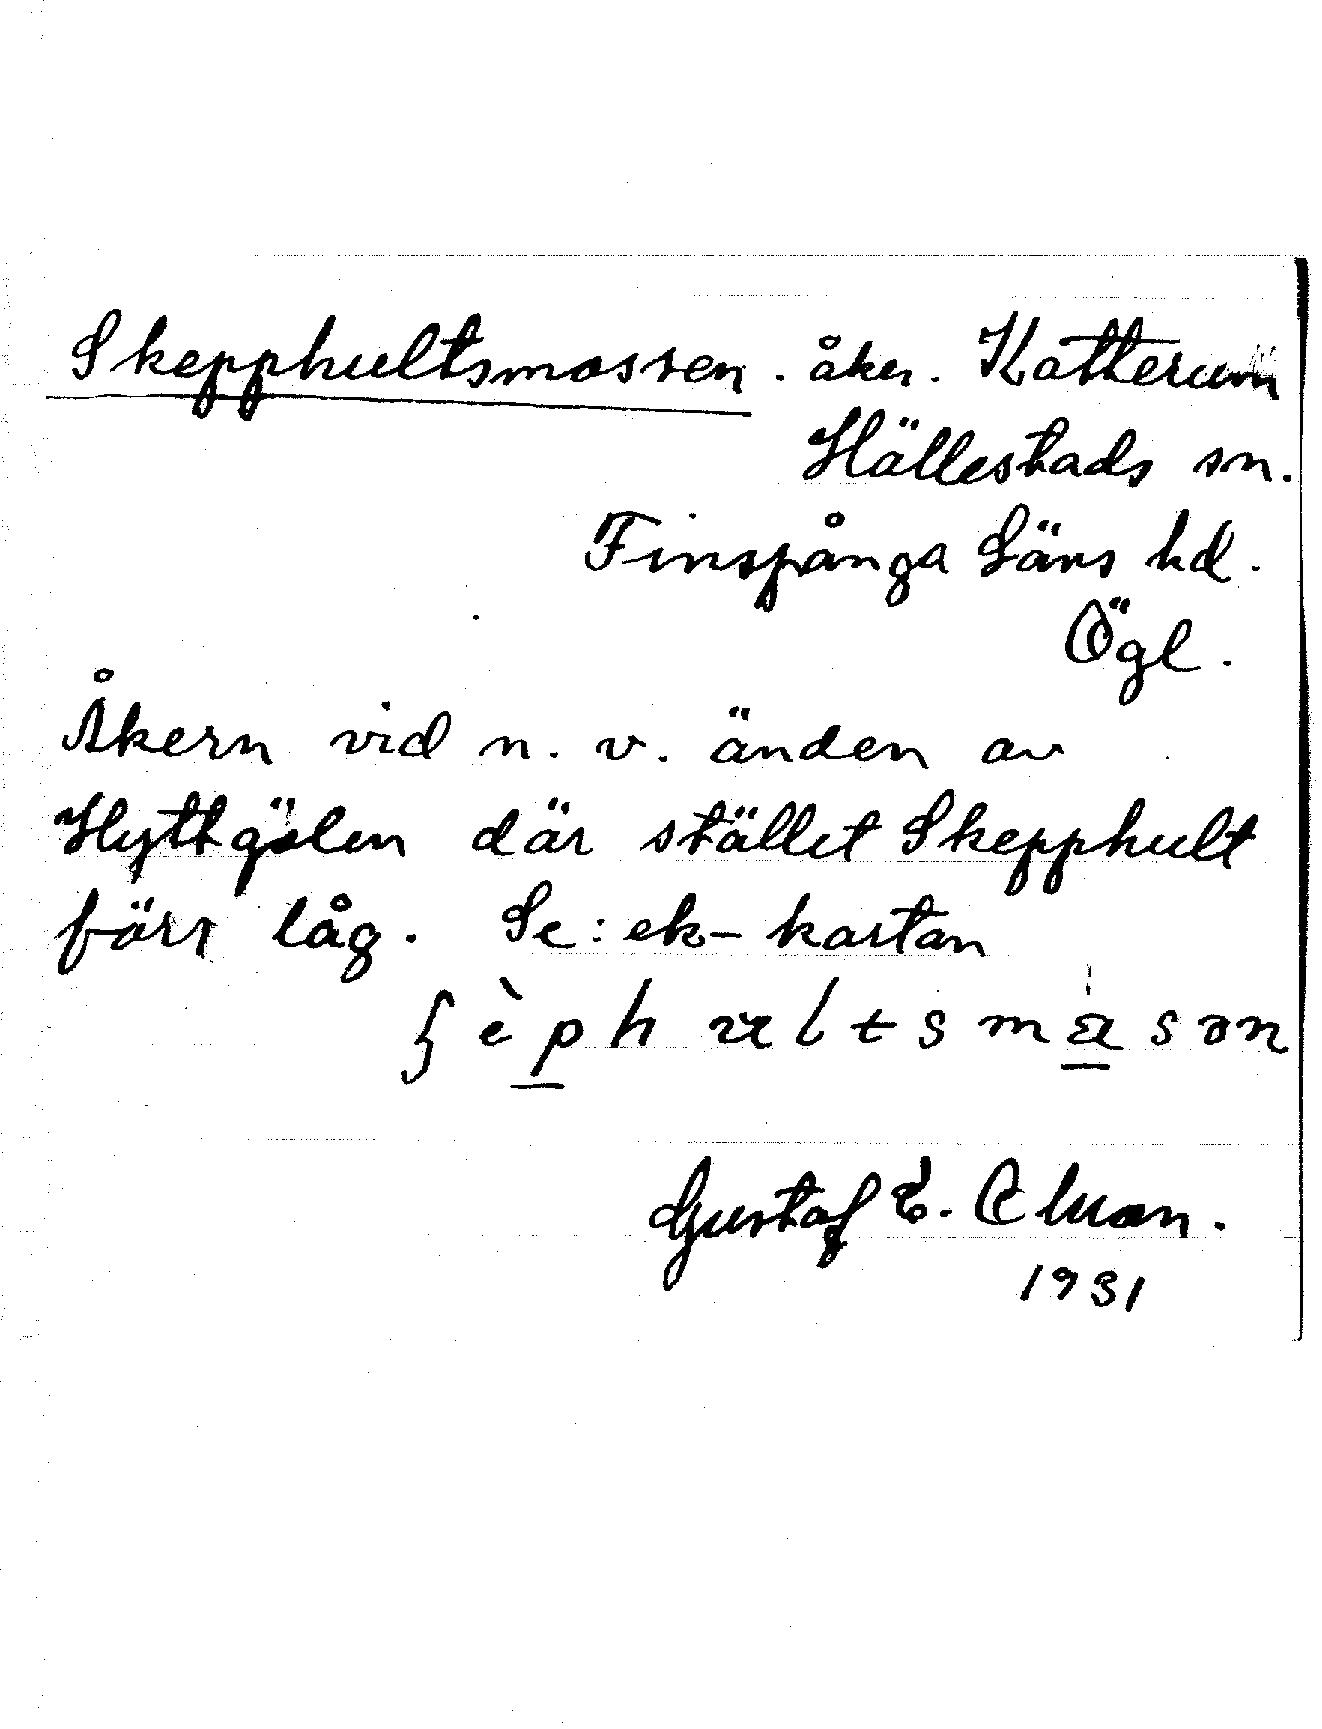 Skepphultsmossen. åker. Katterum
Hällestads sn.
Finspånga Läns hd.
Ögl.
Åkern vid n. v. änden av
Hyttgölen där stället Skepphult
förr låg. Se: ek-kartan
Gustaf E.
1931